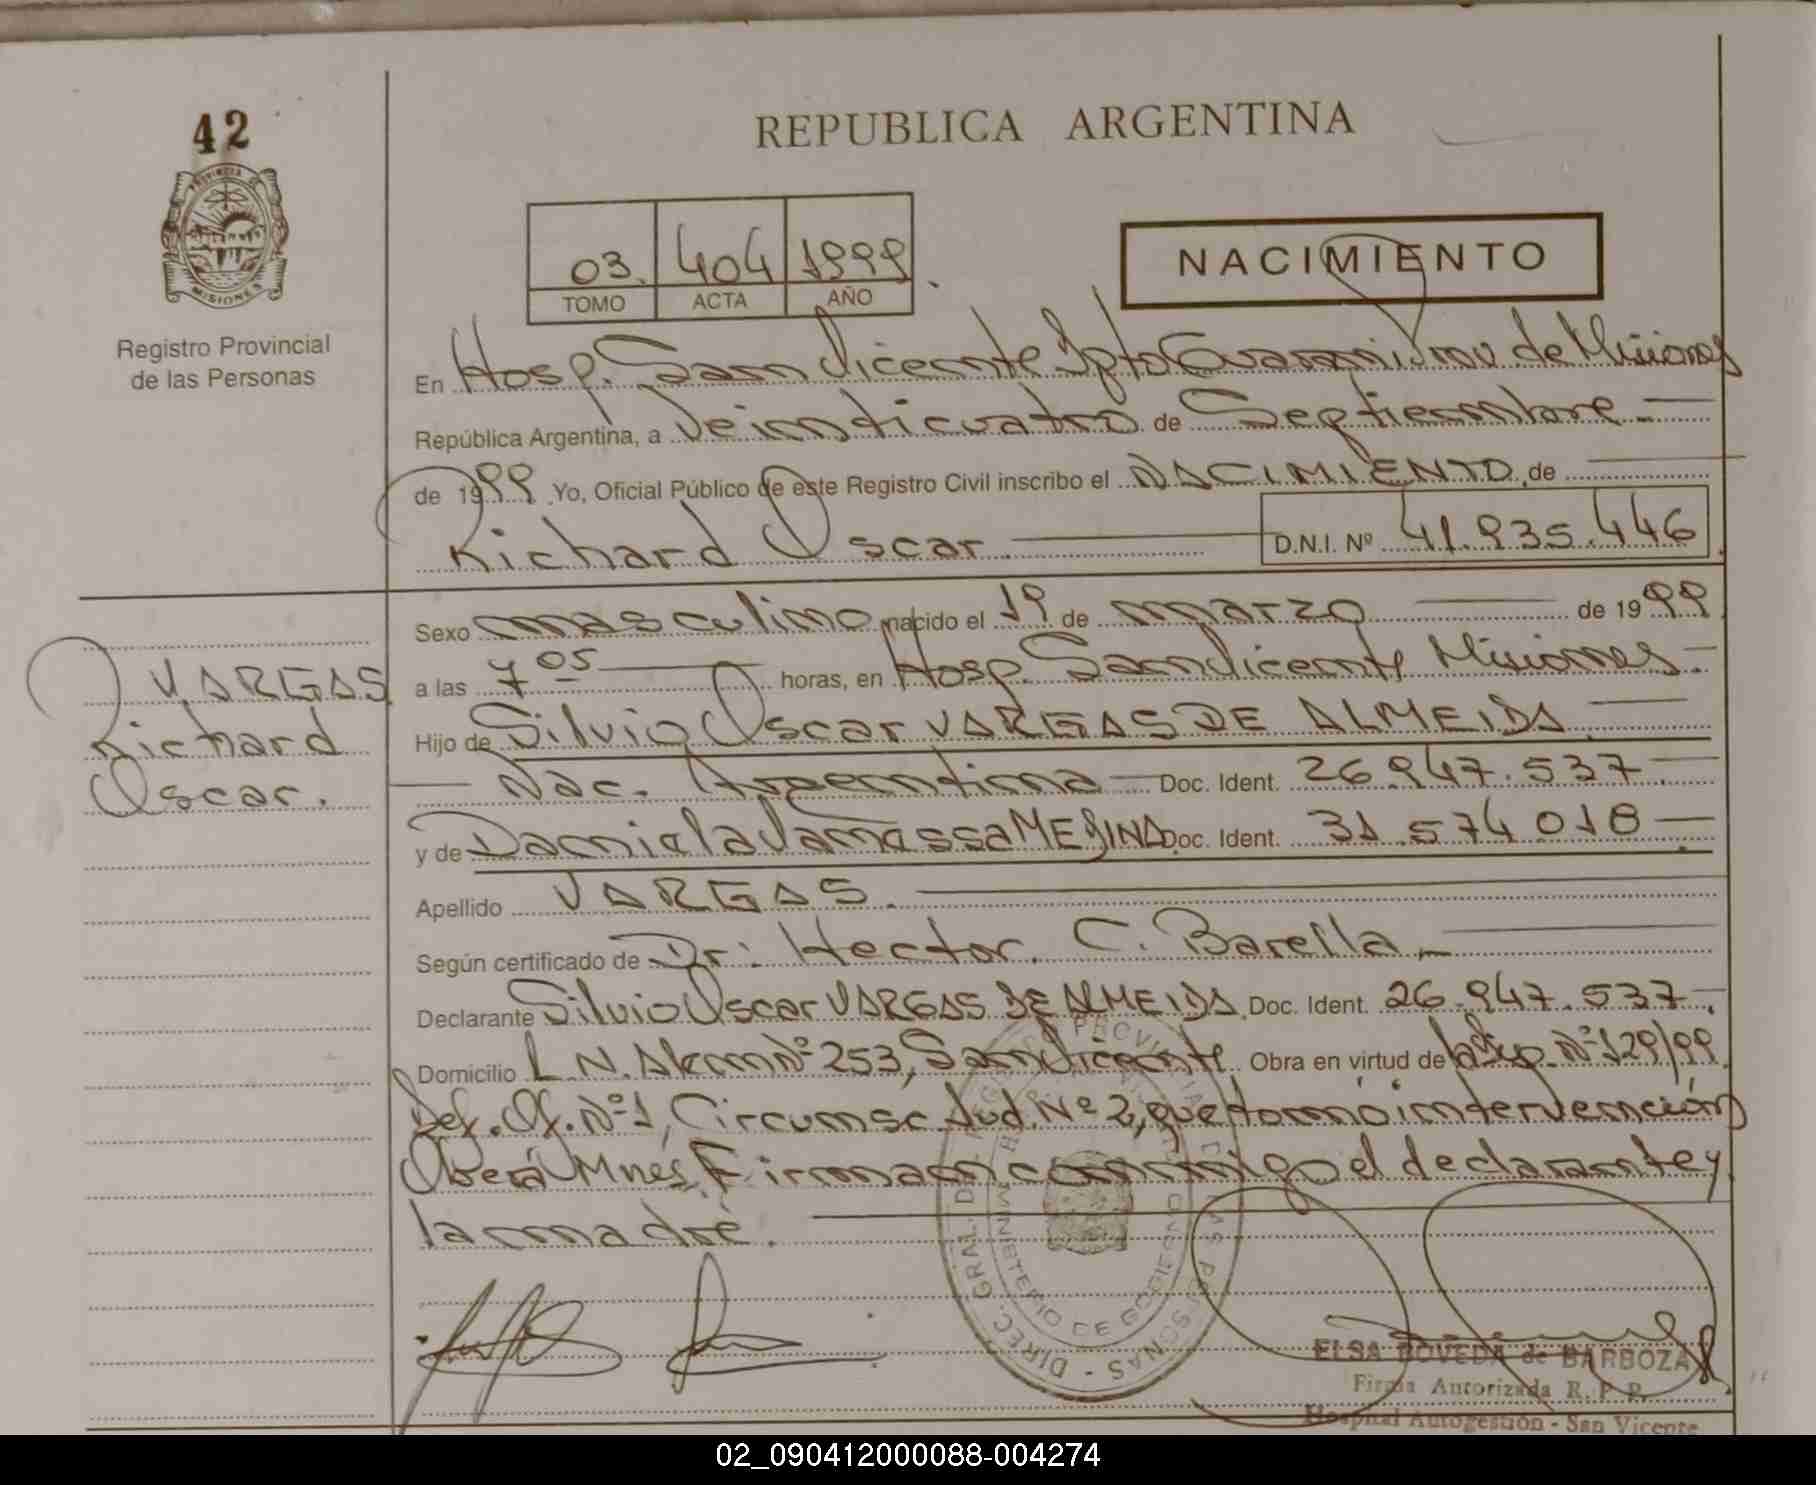 42
REPUBLICA ARGENTINA
PROVINCIA DE
MISIONES
Registro Provincial
de las Personas
03. 404 1999
TOMO ACTA AÑO
NACIMIENTO
En Hosp. San Vicente Dpto Guaraní Prov. de Misiones
República Argentina, a Veinticuatro de Septiembre.
de 1999 Yo, Oficial Público de este Registro Civil inscribo el NACIMIENTO de
Richard Oscar D.N.I. Nº 41.935.446
Sexo masculino nacido el 19 de marzo de 1999
a las 7 05 horas, en Hosp. San Vicente Misiones.
Hijo de Silvio Oscar VARGAS DE ALMEIDA
Nac. Argentina Doc. Ident. 26.947.537.
y de Daniela Vanessa MEDINA Doc. Ident. 31.574.018
Apellido VARGAS.
Según certificado de Dr: Hector. C. Barella.
Declarante Silvio Oscar VARGAS DE ALMEIDA Doc. Ident. 26.947.537.
Domicilio L.N. Alem Nº 253, San Vicente. Obra en virtud de Nº 129/99
Def. Of. Nº 1, Circunsc. Jud. Nº 2, que tomó intervención
Oberá Mnes. Firman conmigo el declarante y
la madre.
VARGAS
Richard
Oscar.
DIREC. GRAL. DEL REGISTRO PROVINCIAL DE LAS PERSONAS
MINISTERIO DE GOBIERNO
ELSA POVEDA de BARBOZA
Firma Autorizada R. P. P.
Hospital Autogestión - San Vicente
02_090412000088-004274